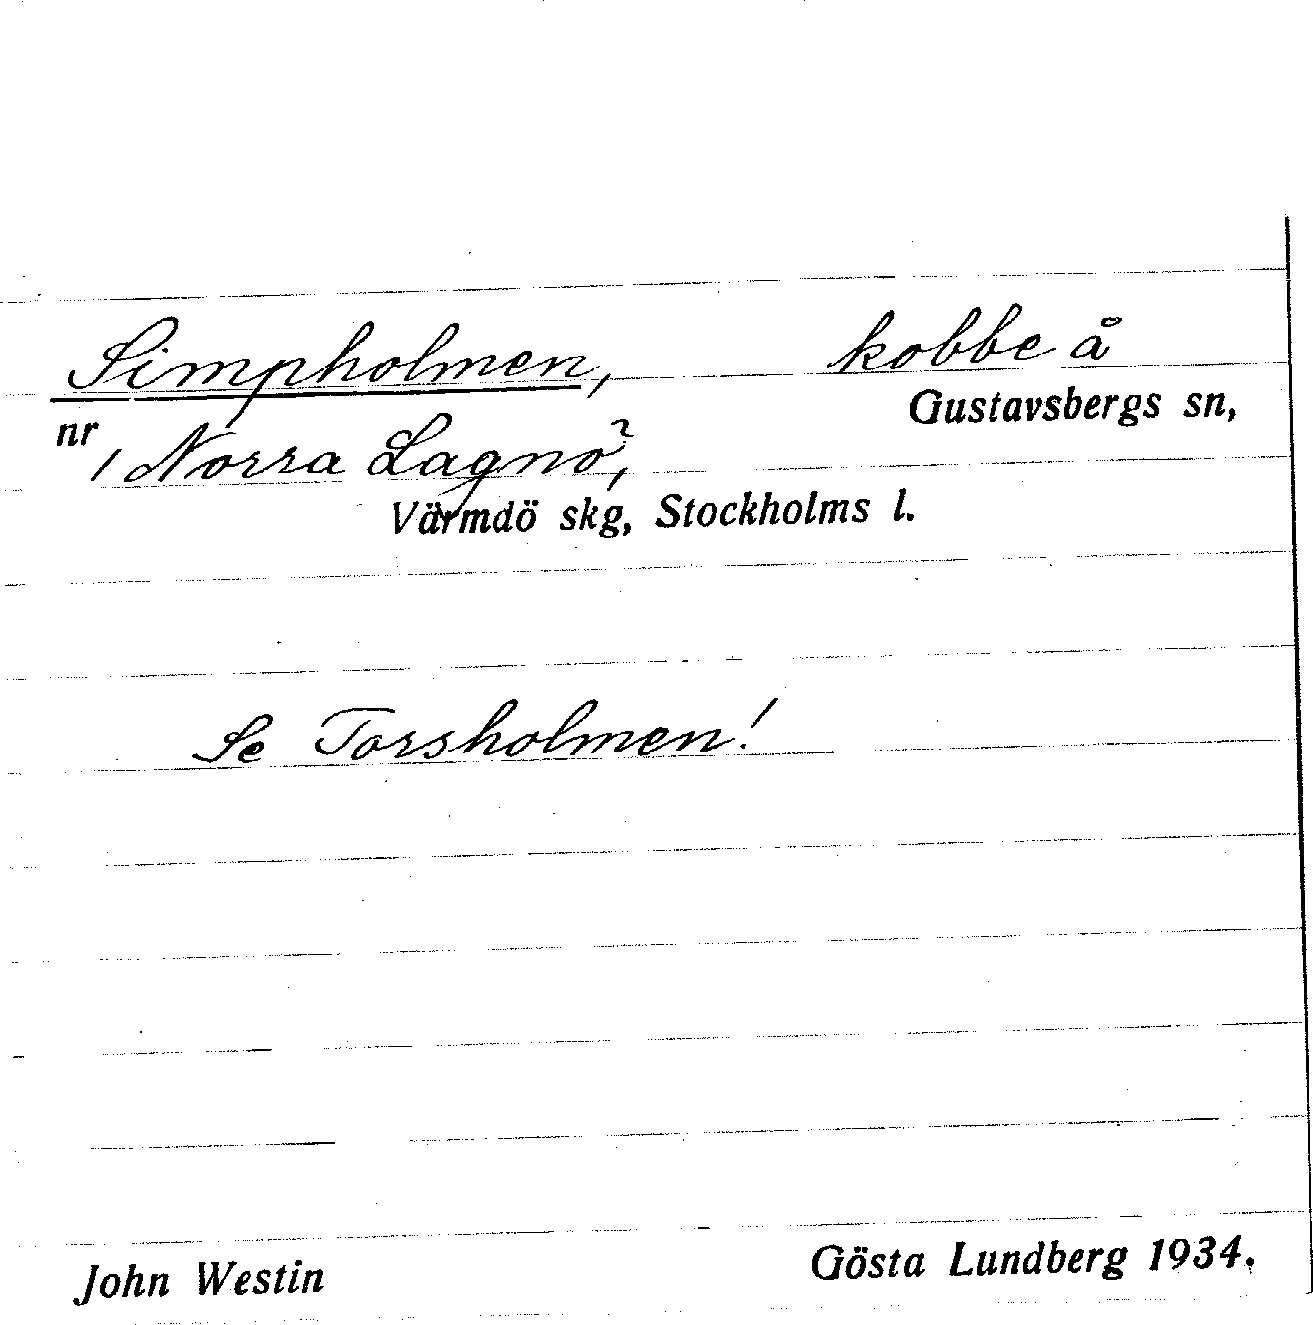 Simpholmen, kobbe å
nr 1 Norra Lagnö, Gustavsbergs sn,
Värmdö skg, Stockholms l.
Se Torsholmen!
John Westin Gösta Lundberg 1934.